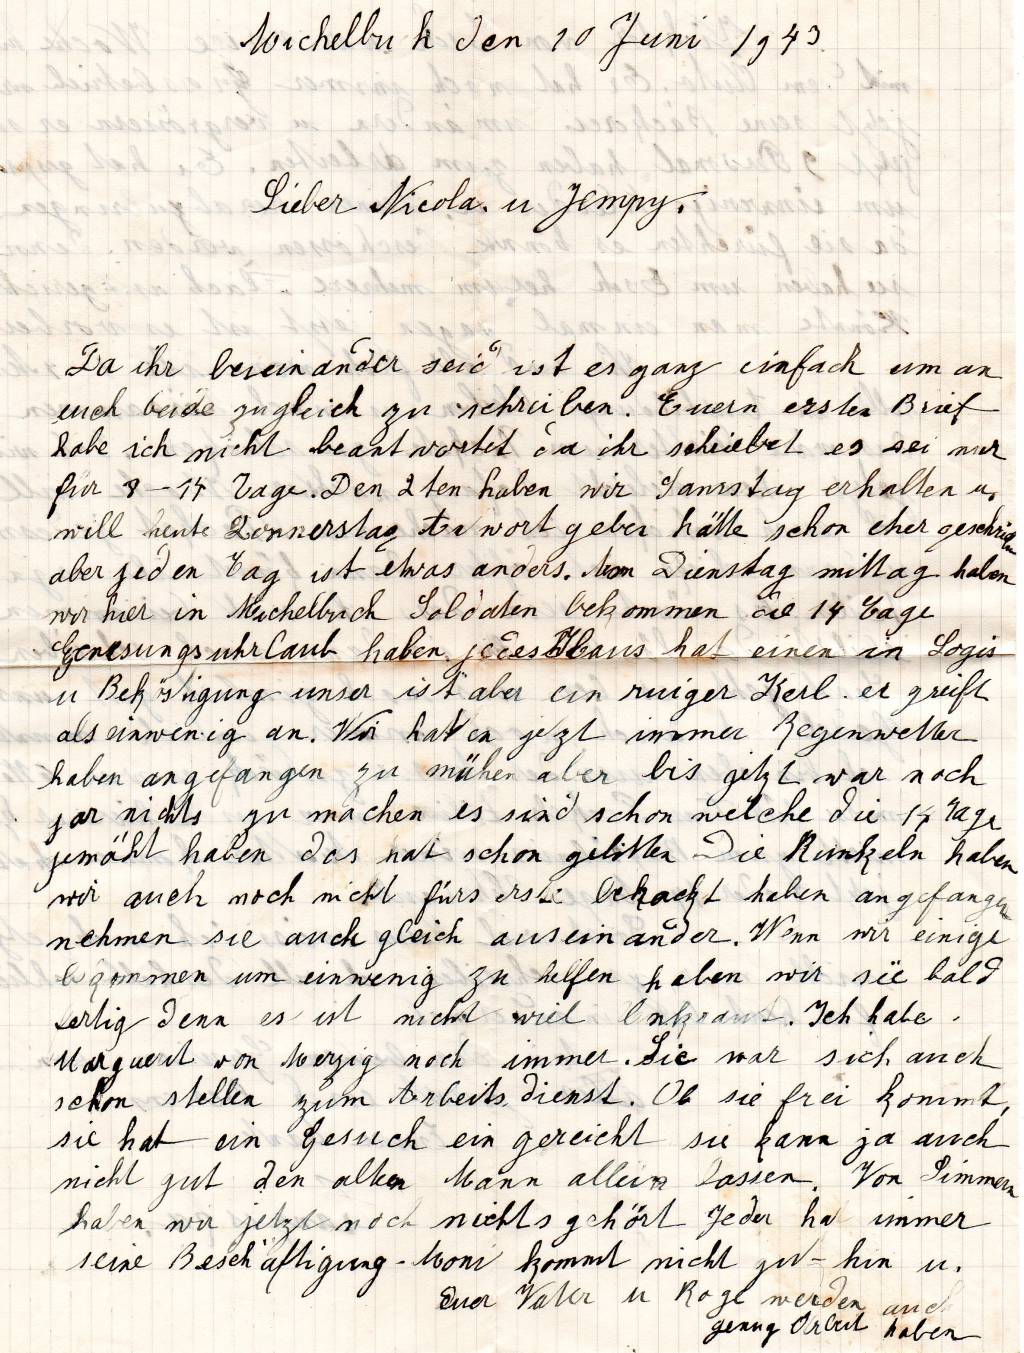 Michelbuch den 10 Juni 1943
Lieber Nicola. u Jempy.
Da ihr beieinander seid ist es ganz einfach um an
euch beide zugleich zu schreiben. Euern ersten Brief
habe ich nicht beantwortet da ihr schiebet es sei nur
für 8-14 Tage. Den 2ten haben wir Samstag erhalten u.
will heute Donnerstag Antwort geben hätte schon eher
aber jeden Tag ist etwas anders. Dienstag mittag haben
wir hier in Michelbuch Soldaten bekommen die 14 Tage
Genesungsuhrlaub haben jedes Haus hat einen in Logis
u Beköstigung unser ist aber ein ruiger Kerl. er greift
als einwenig an. Wir haben jetzt immer Regenwetter
haben angefangen zu mühen aber bis jetzt war noch
jar nichts zu machen es sind schon welche die 14 Tage
jemäht haben das hat schon gelitten Die Runkeln haben
wir auch noch nicht fürs erste behackt haben angefangen
nehmen sie auch gleich auseinander. Wenn wir einige
bekommen um einwenig zu helfen haben wir sie bald
fertig denn es ist nicht viel Unkraut. Ich habe
Marguerit von Merzig noch immer. Sie war sich auch
schon stellen zum Arbeitsdienst. Ob sie frei kommt,
sie hat ein Gesuch ein gereicht sie kann ja auch
nicht gut den alten Mann allein lassen. Von Simmern
haben wir jetzt noch nichts gehört Jeder hat immer
seine Beschäftigung. Moni kommt nicht hin u.
Euer Vater u Roge werden auch
genug Arbeit haben